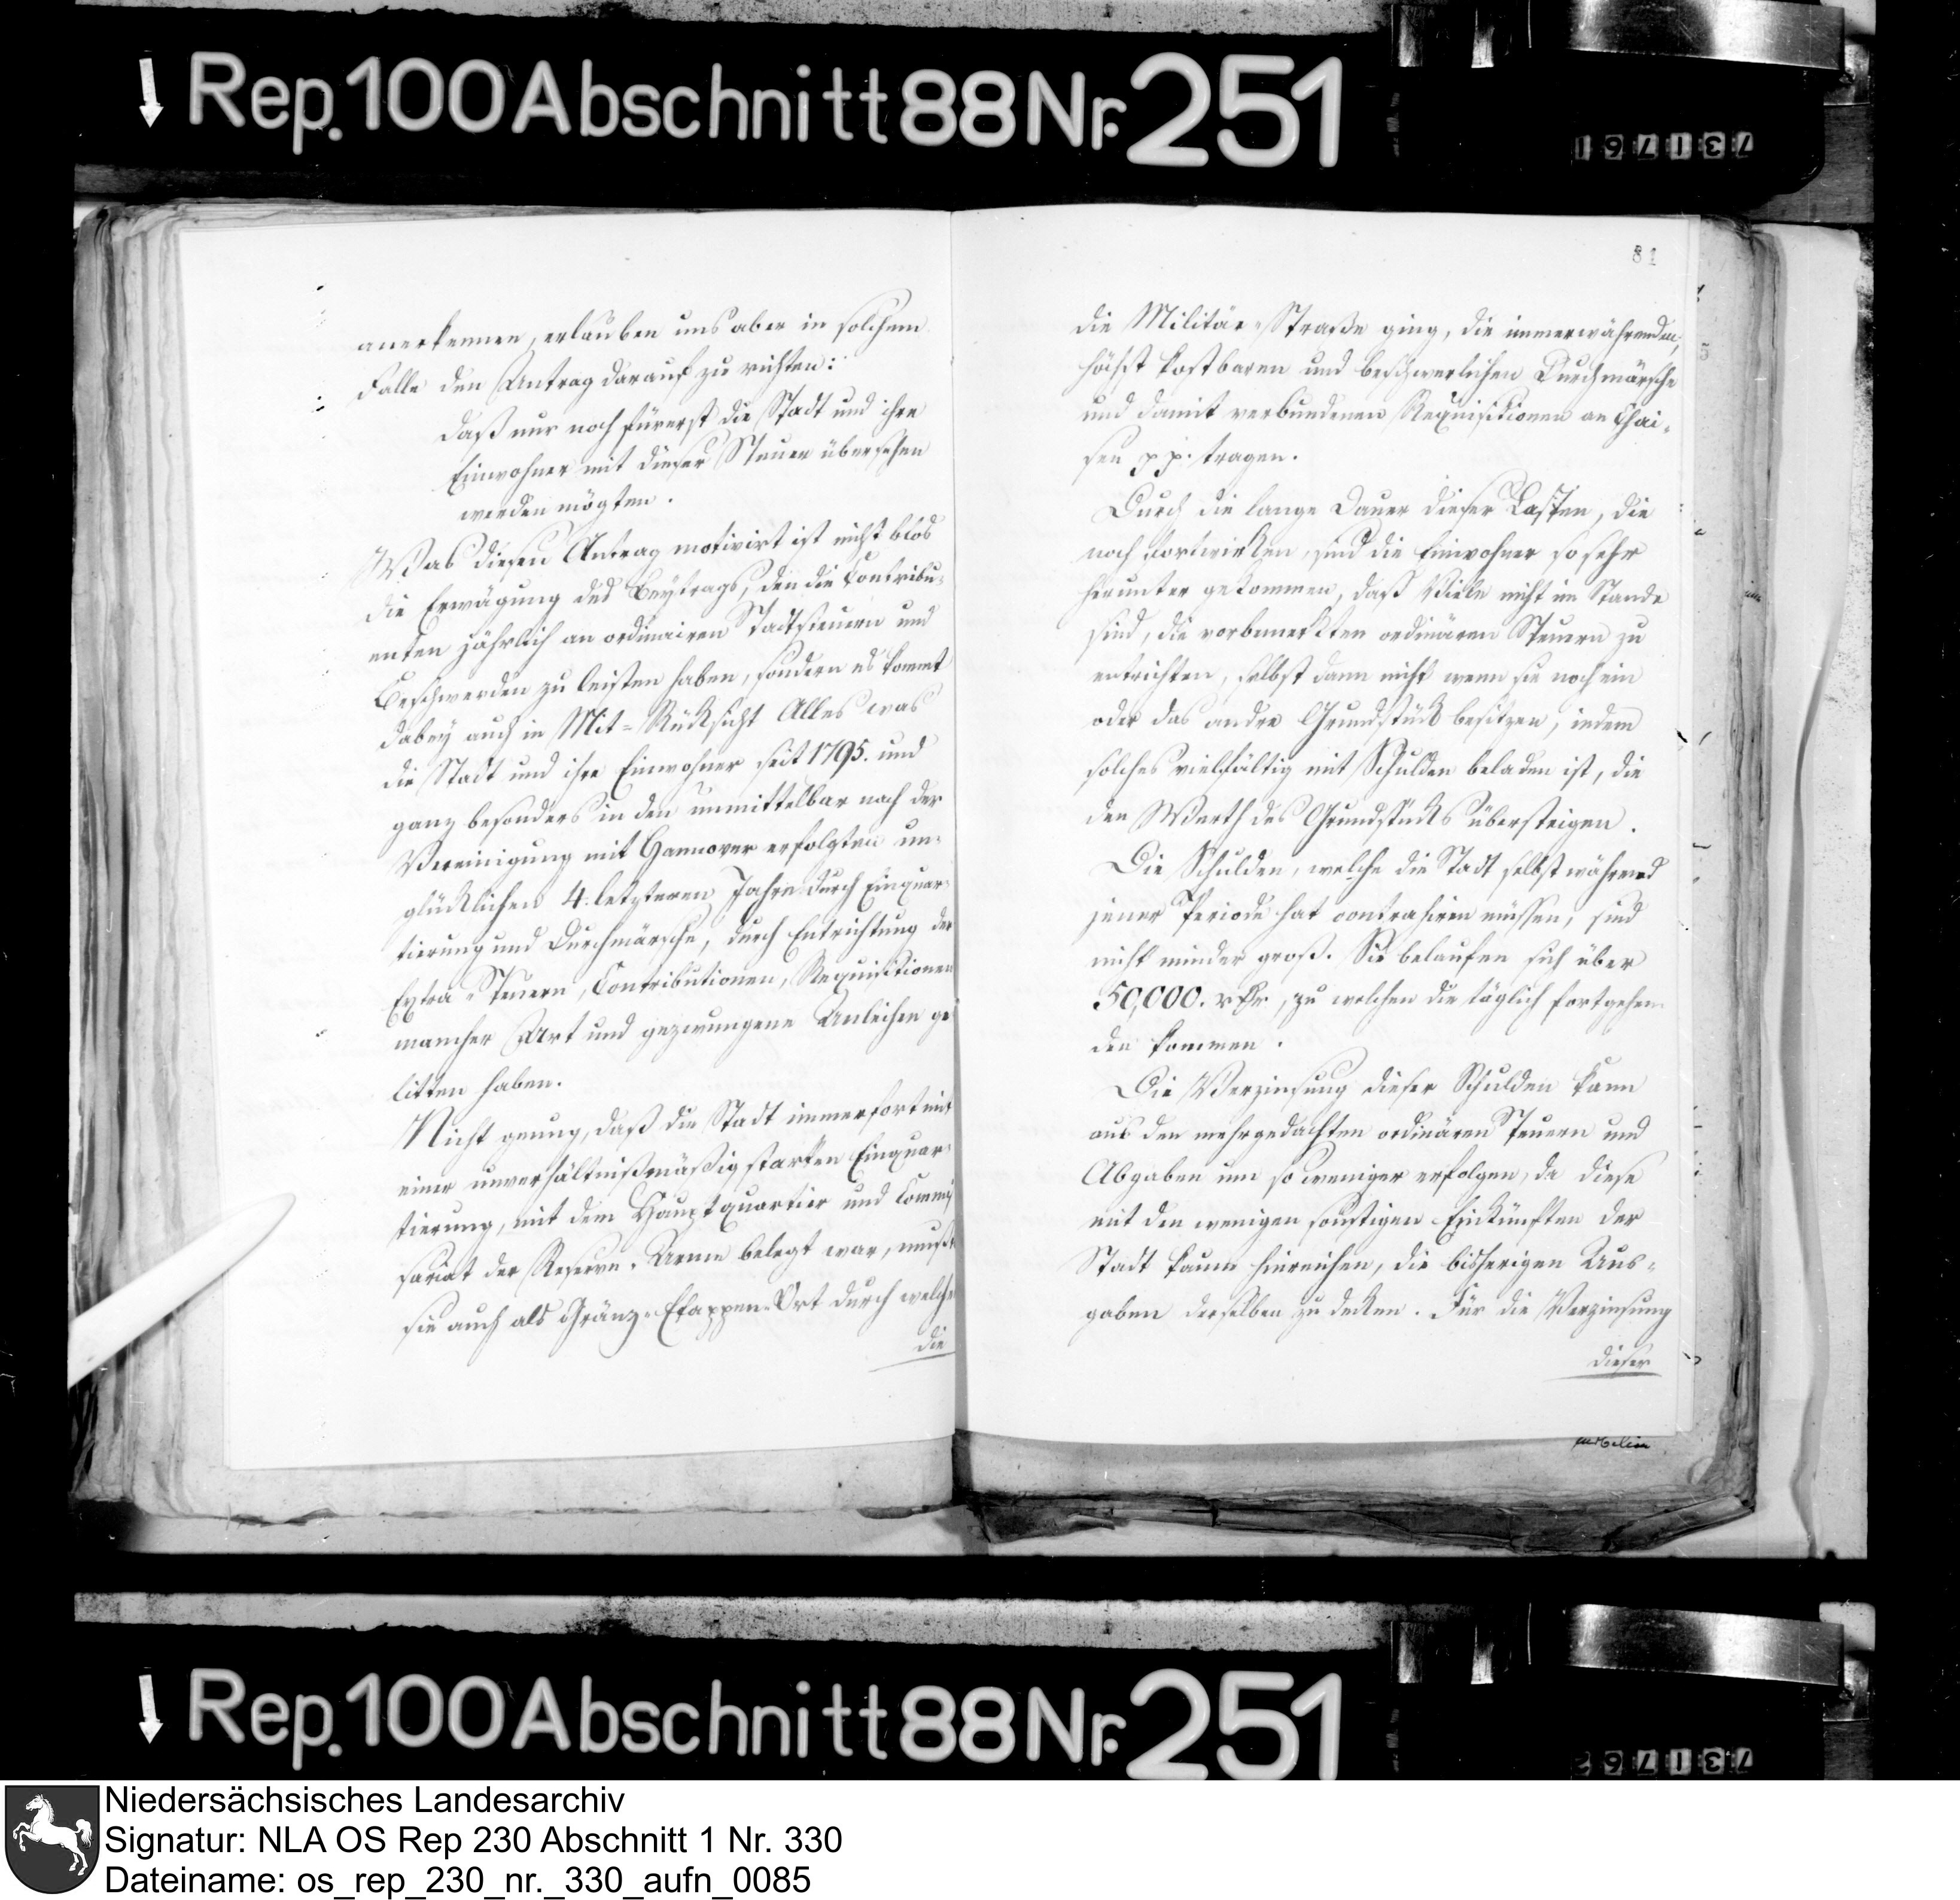 Rep. 100 Abschnitt 88 Nr. 251
731761
anerkennen, erlauben uns aber in solchem
Falle den Antrag darauf zu richten:
daß nur noch fürerst die Stadt und ihre
Einwohner mit dieser Steuer übersehen
werden mögten.
Was diesen Antrag motivirt ist nicht blos
die Erwägung des Beytrags, den die Contribu-
enten jährlich an ordinairen Stadtsteuern und
Beschwerden zu leisten haben, sondern es kommt
dabey auch in Mit-Rücksicht Alles was
die Stadt und ihre Einwohner seit 1795. und
ganz besonders in den unmittelbar nach der
Vereinigung mit Hannover erfolgten un-
glücklichen 4. letzteren Jahre durch Einquar-
tierung und Durchmärsche, durch Entrichtung der
Extra-Steuern, Contributionen, Requisitionen
mancher Art und gezwungene Anleihen ge-
litten haben.
Nicht genug, daß die Stadt immerfort mit
einer unverhältnißmäßig starken Einquar-
tierung, mit dem Hauptquartier und Commis-
sariat der Reserve-Armee belegt war, mußte
sie auch als Gränz-Etappen-Ort durch welche
die
81
die Militär-Straße ging, die immerwährenden,
höchst kostbaren und beschwerlichen Durchmärsche
und damit verbundenen Requisitionen an Chai-
sen pp. tragen.
Durch die lange Dauer dieser Lasten, die
noch fortwirken, sind die Einwohner so sehr
herunter gekommen, daß Viele nicht im Stande
sind, die vorbemerkten ordinären Steuern zu
entrichten, selbst dann nicht wenn sie noch ein
oder das andre Grundstück besitzen, indem
solches vielfältig mit Schulden beladen ist, die
den Werth des Grundstücks übersteigen.
Die Schulden, welche die Stadt selbst während
jener Periode hat contrahiren müssen, sind
nicht minder groß. Sie belaufen sich über
50,000. rthlr, zu welchen die täglich fortgehen-
den kommen.
Die Verzinsung dieser Schulden kann
aus den mehrgedachten ordinären Steuern und
Abgaben um so weniger erfolgen, da diese
mit den wenigen sonstigen Einkünften der
Stadt kaum hinreichen, die bisherigen Aus-
gaben derselben zu decken. Für die Verzinsung
dieser
Rep. 100 Abschnitt 88 Nr. 251
731762
Niedersächsisches Landesarchiv
Signatur: NLA OS Rep 230 Abschnitt 1 Nr. 330
Dateiname: os_rep_230_nr._330_aufn_0085